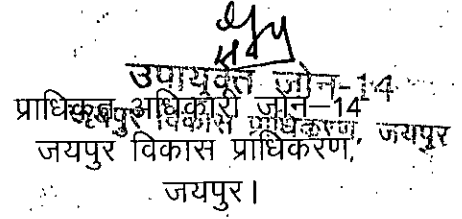 उपायुक्त जोन-14
प्राधिकृत अधिकारी जोन-14
जयपुर विकास प्राधिकरण, जयपुर
जयपुर विकास प्राधिकरण,
जयपुर।